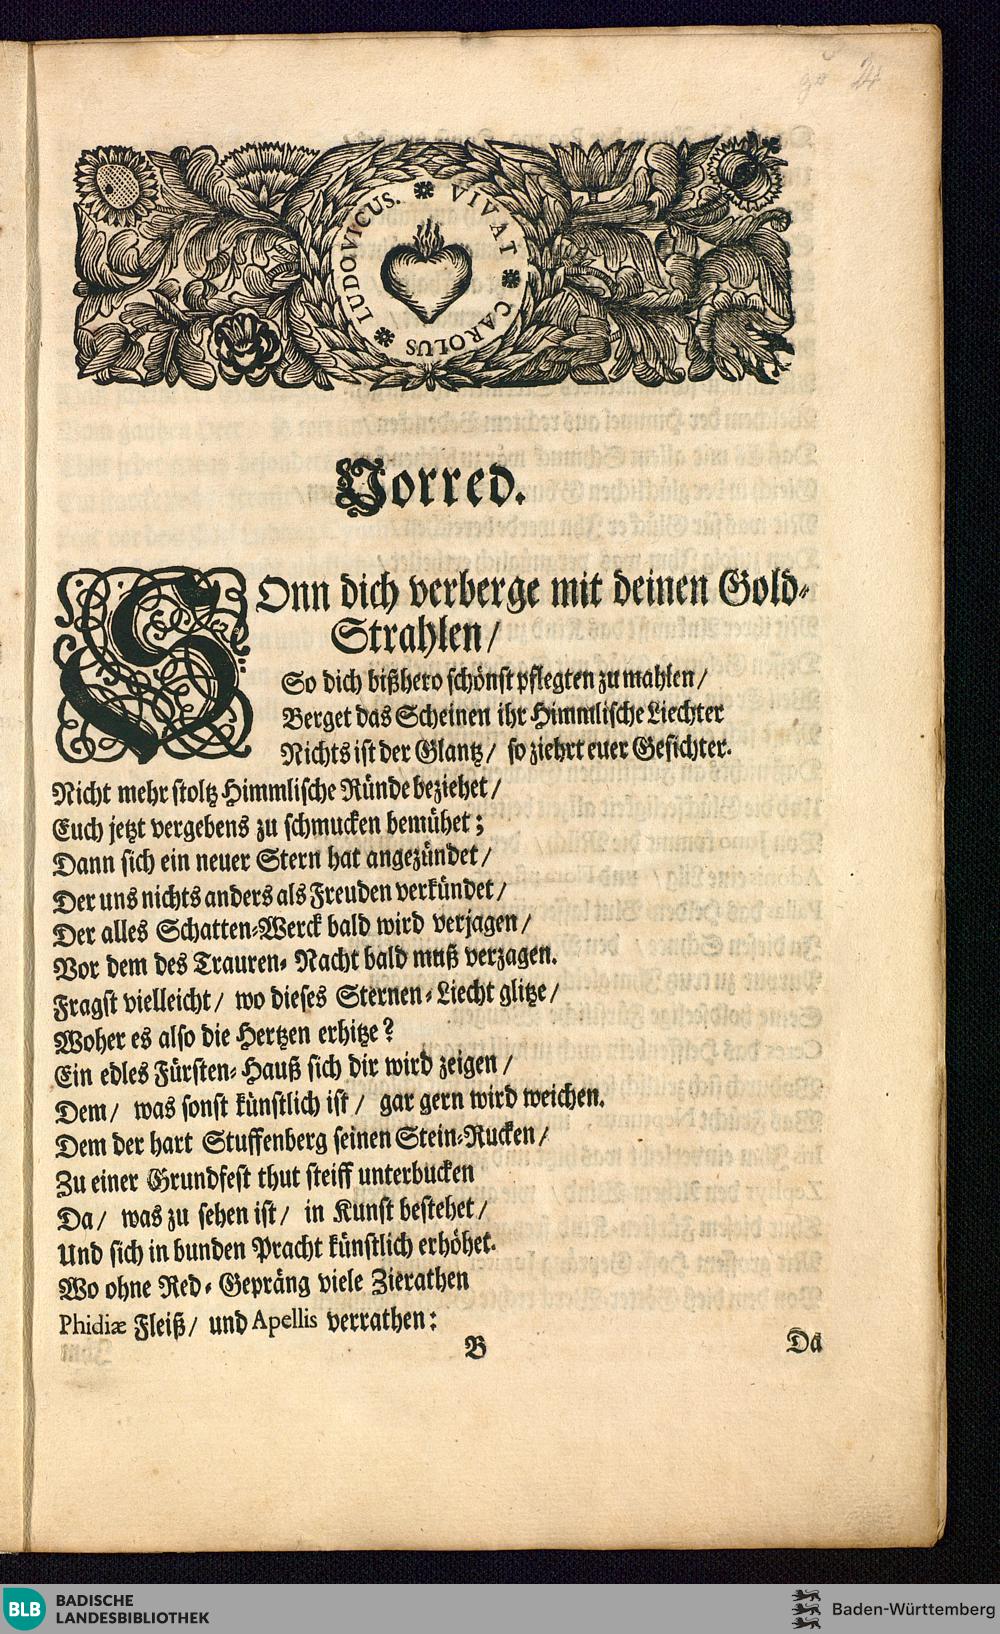 24
VIVAT * CAROLUS * LUDOVICUS. *
Vorred.
SOnn dich verberge mit deinen Gold-
Strahlen/
So dich bißhero schönst pflegten zu mahlen/
Berget das Scheinen ihr Himmlische Liechter
Nichts ist der Glantz/ so ziehrt euer Gesichter.
Nicht mehr stoltz Himmlische Ründe beziehet/
Euch jetzt vergebens zu schmucken bemühet;
Dann sich ein neuer Stern hat angezündet/
Der uns nichts anders als Freuden verkündet/
Der alles Schatten-Werck bald wird verjagen/
Vor dem des Trauren-Nacht bald muß verzagen.
Fragst vielleicht/ wo dieses Sternen-Liecht glitze/
Woher es also die Hertzen erhitze?
Ein edles Fürsten-Hauß sich dir wird zeigen/
Dem/ was sonst künstlich ist/ gar gern wird weichen.
Dem der hart Stuffenberg seinen Stein-Rucken/
Zu einer Grundfest thut steiff unterbucken
Da/ was zu sehen ist/ in Kunst bestehet/
Und sich in bunden Pracht künstlich erhöhet.
Wo ohne Red-Gepräng viele Zierathen
Phidiæ Fleiß/ und Apellis verrathen:
B
Da
BLB BADISCHE
LANDESBIBLIOTHEK
Baden-Württemberg